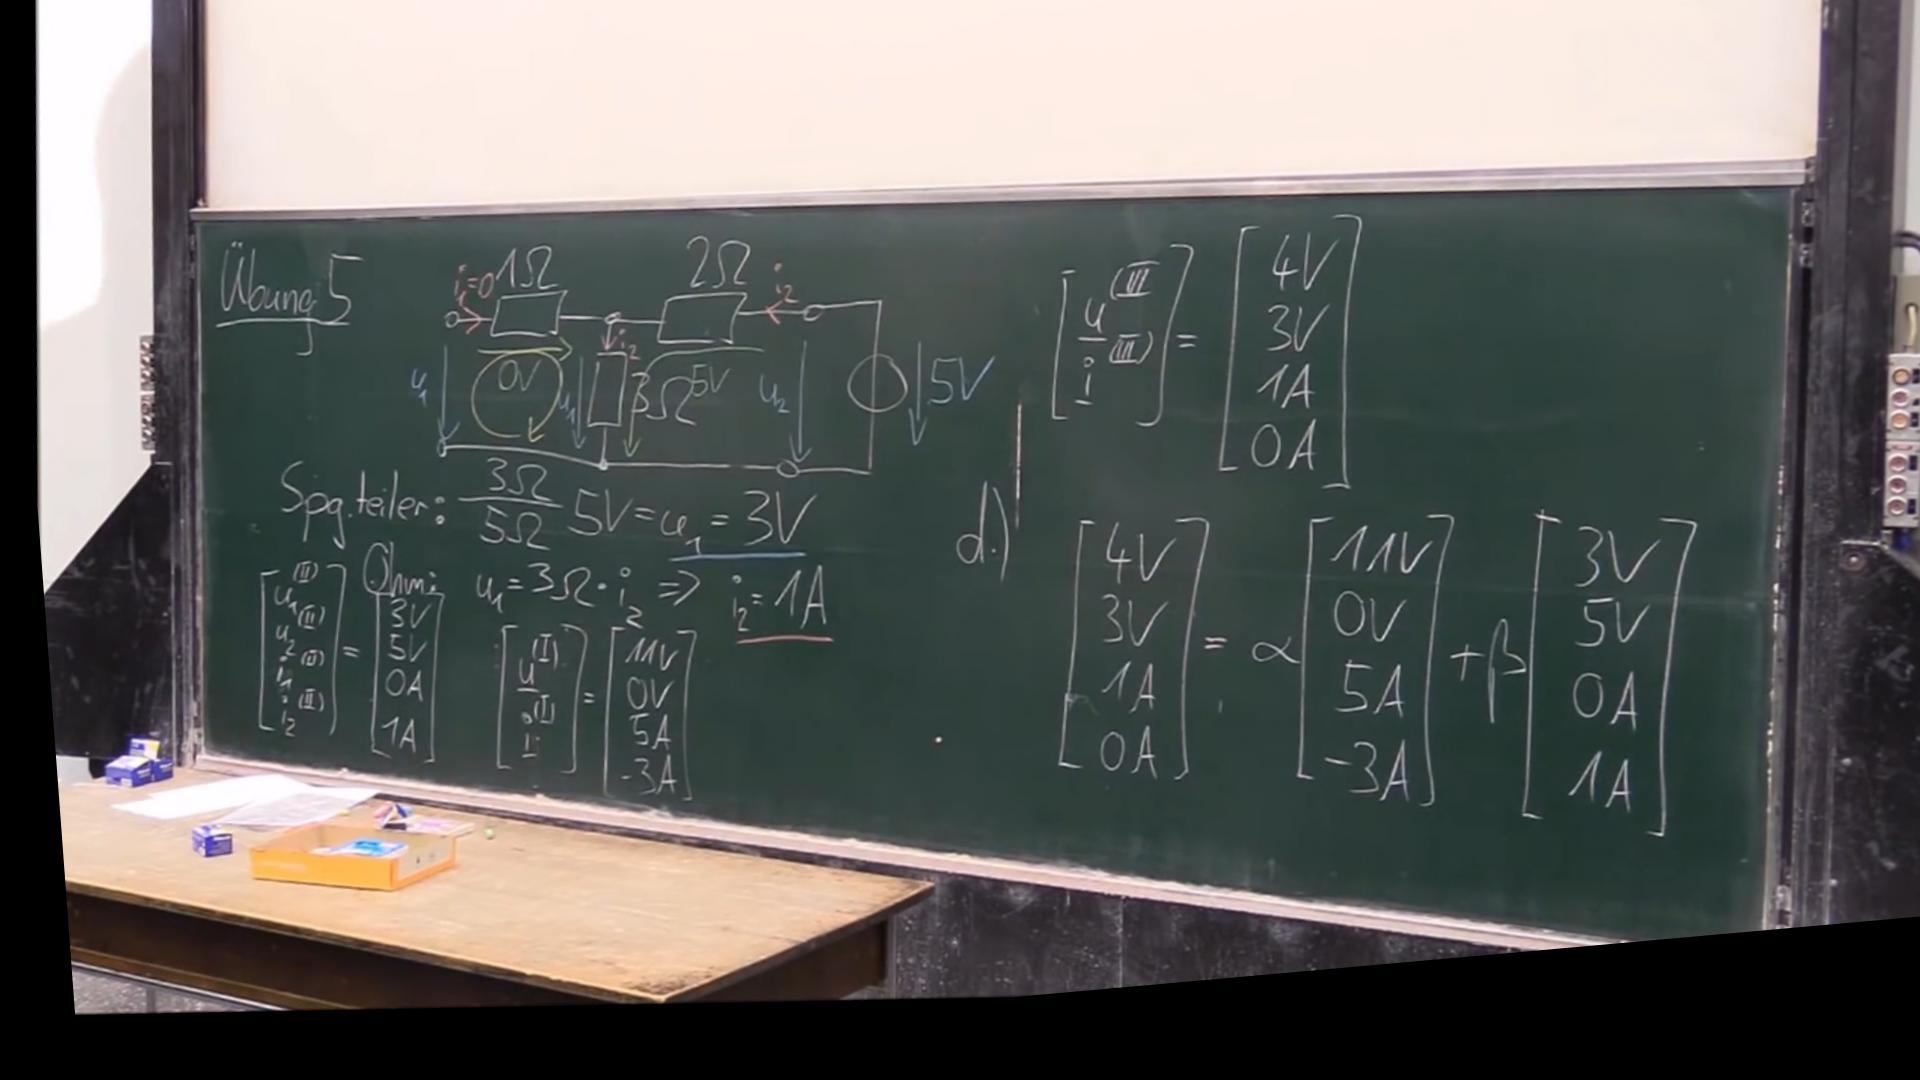 Übung 5
1Ω
2Ω
i₁=0
i₂
i₂
u₁
0V
u₁
3Ω
5V
u₂
5V
Spg.teiler: 3Ω/5Ω 5V = u₁ = 3V
Ohm: u₁ = 3Ω · i₂ ⇒ i₂ = 1A
[u₁^(II) u₂^(II) i₁^(II) i₂^(II)] = [3V 5V 0A 1A]
[u^(I) i^(I)] = [11V 0V 5A -3A]
[u^(III) i^(III)] = [4V 3V 1A 0A]
d.)
[4V 3V 1A 0A] = α [11V 0V 5A -3A] + β [3V 5V 0A 1A]